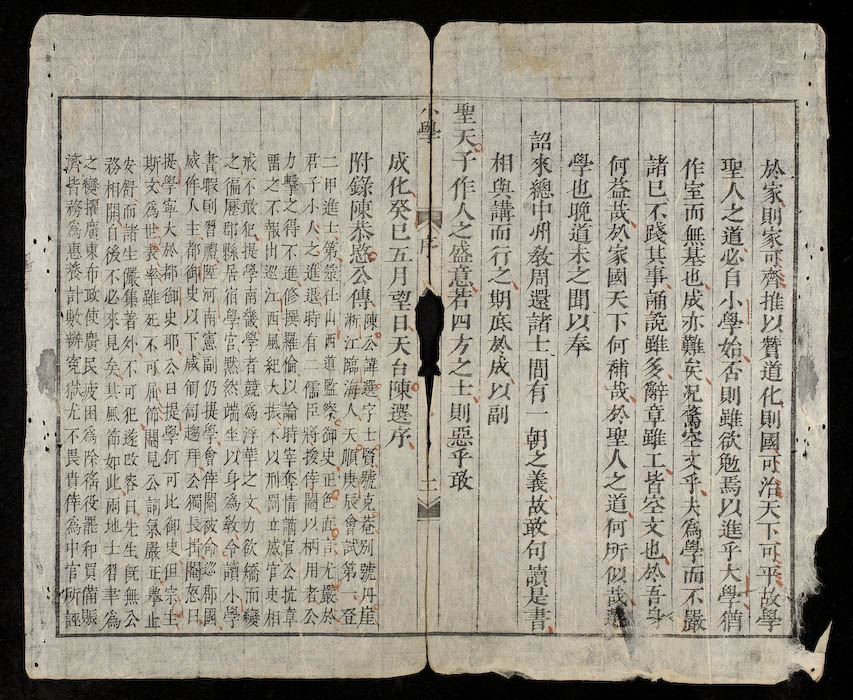 於家則家可齊推以贊道化則國可治天下可平故學
聖人之道必自小學始否則雖欲勉焉以進乎大學猶
作室而無基也成亦難矣况騖空文乎夫為學而不嚴
諸已不踐其事誦說雖多辭章雖工皆空文也於吾身
何益哉於家國天下何補哉於聖人之道何所似哉
學也晚道未之聞以奉
詔來總中州敎周還諸士間有一朝之義故敢句讀是書
相與講而行之期底於成以副
聖天子作人之盛意若四方之士則惡乎敢
成化癸巳五月望日天台陳選序
小學
序
二
附錄陳恭愍公傳
陳公諱選字士賢號克菴別號丹崖
浙江臨海人天順庚辰會試第一登
二甲進士第筮仕山西道監察御史正色直言尤嚴於
君子小人之進退時有二儒臣將援倖閹以柄用者公
力擊之得不進修撰羅倫以論時宰奪情謫官公抗章
雷之不報出巡江西風紀大振不以刑罰立威官吏相
戒不敢犯提學南畿學者競為浮華之文力欲矯而變
之徧歷郡縣居宿學官默然端坐以身為敎令讀小學
書暇則習禮陞河南憲副仍提學會倖閹被命巡郡國
威侔人主都御史以下咸匍匐趨拜公獨長揖閹怒曰
提學寧大於都御史耶公曰提學何可比御史但宗主
斯文為世表率雖死不可屈節閹見公詞氣嚴正舉止
安舒而諸生儼集著外不可犯遂改容曰先生旣無公
務相關自後不必來見矣其風節如此兩地士習丕為
之變擢廣東布政使廣民疲困為除徭役罷和買備賑
濟皆務為惠養計數辨寃獄尤不畏貴倖為中官所誣